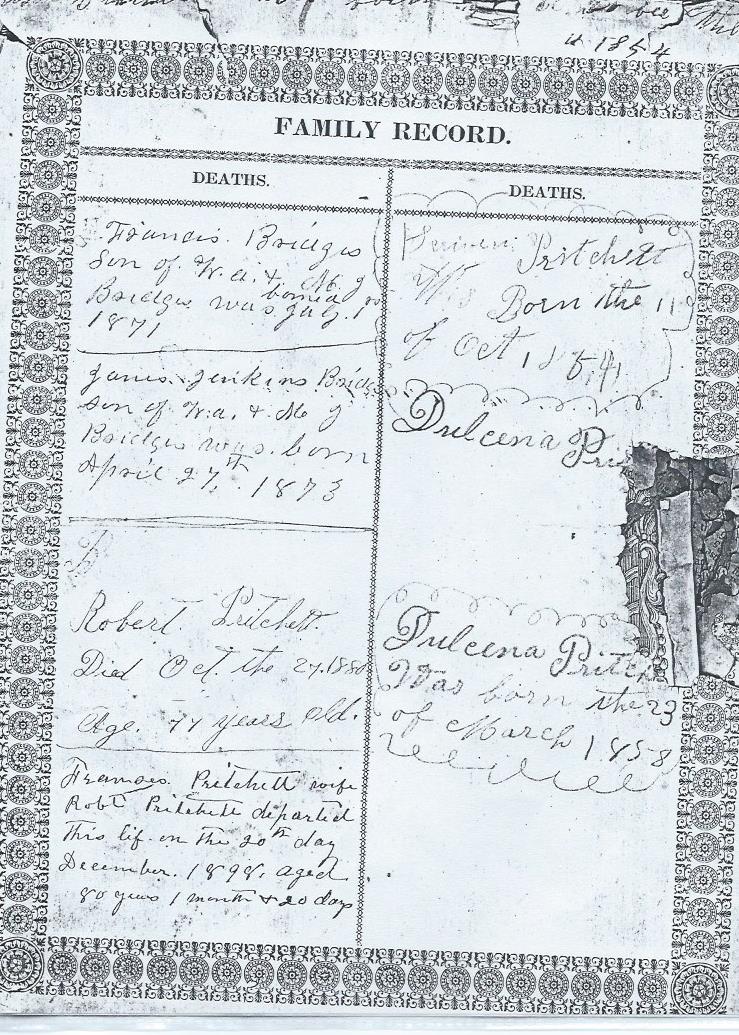 1854
FAMILY RECORD.
DEATHS.
Francis. Bridges
Son of W. a. & M. J
Bridges was July. 1
1871
James. Jenkins Bridg
Son of W. a. & M. J
Bridges was. born
April 27th 1873
Robert Pritchett.
Died Oct. the 27. 1880
Age. 77 years old.
Frances Pritchett wife
Robt Pritchett departed
this lif on the 20th day
December. 1898. aged
80 years 1 month & 20 days
DEATHS.
Pritchett
Was Born the 11
of Oct 1854
Dulcena Pri
Dulcena Pritch
Was born the 23
of March 1858